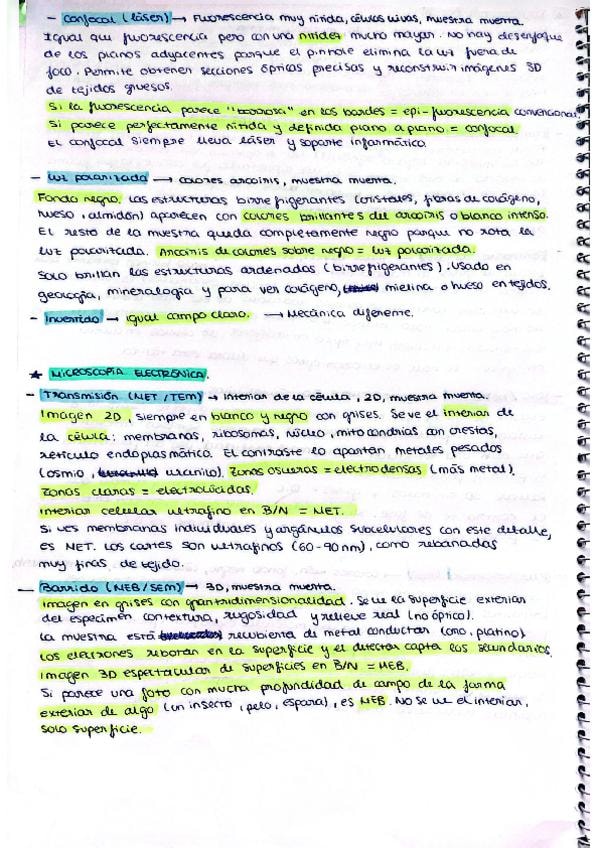 - Confocal (láser) → Fluorescencia muy nítida, células vivas, muestra muerta.
Igual que fluorescencia pero con una nitidez mucho mayor. No hay desenfoque
de los planos adyacentes porque el pinhole elimina la luz fuera de
foco. Permite obtener secciones ópticas precisas y reconstruir imágenes 3D
de tejidos gruesos.
Si la fluorescencia parece "borrosa" en los bordes = epi-fluorescencia convencional.
Si parece perfectamente nítida y definida plano a plano = confocal.
El confocal siempre lleva láser y soporte informático.
- Luz polarizada → colores arcoiris, muestra muerta.
Fondo negro. Las estructuras birrefrigerantes (cristales, fibras de colágeno,
hueso, almidón) aparecen con colores brillantes del arcoiris o blanco intenso.
El resto de la muestra queda completamente negro porque no rota la
luz polarizada. Arcoiris de colores sobre negro = luz polarizada.
Solo brillan las estructuras ordenadas (birrefrigerantes). Usado en
geología, mineralogía y para ver colágeno, mielina o hueso en tejidos.
- Invertido → igual campo claro. → Mecánica diferente.
★ MICROSCOPÍA ELECTRÓNICA.
- Transmisión (MET / TEM) → interior de la célula, 2D, muestra muerta.
Imagen 2D, siempre en blanco y negro con grises. Se ve el interior de
la célula: membranas, ribosomas, núcleo, mitocondrias con crestas,
retículo endoplasmática. El contraste lo aportan metales pesados
(osmio, uranilo). Zonas oscuras = electrodensas (más metal).
Zonas claras = electrolúcidas.
Interior celular ultrafino en B/N = MET.
Si ves membranas individuales y orgánulos subcelulares con este detalle,
es MET. Los cortes son ultrafinos (60-90nm), como rebanadas
muy finas de tejido.
- Barrido (MEB/SEM) → 3D, muestra muerta.
Imagen en grises con gran tridimensionalidad. Se ve la superficie exterior
del especimen con textura, rugosidad y relieve real (no óptico).
La muestra está recubierta de metal conductor (oro, platino).
Los electrones rebotan en la superficie y el detector capta los secundarios.
Imagen 3D espectacular de superficies en B/N = MEB.
Si parece una foto con mucha profundidad de campo de la forma
exterior de algo (un insecto, pelo, espora), es MEB. No se ve el interior,
solo superficie.